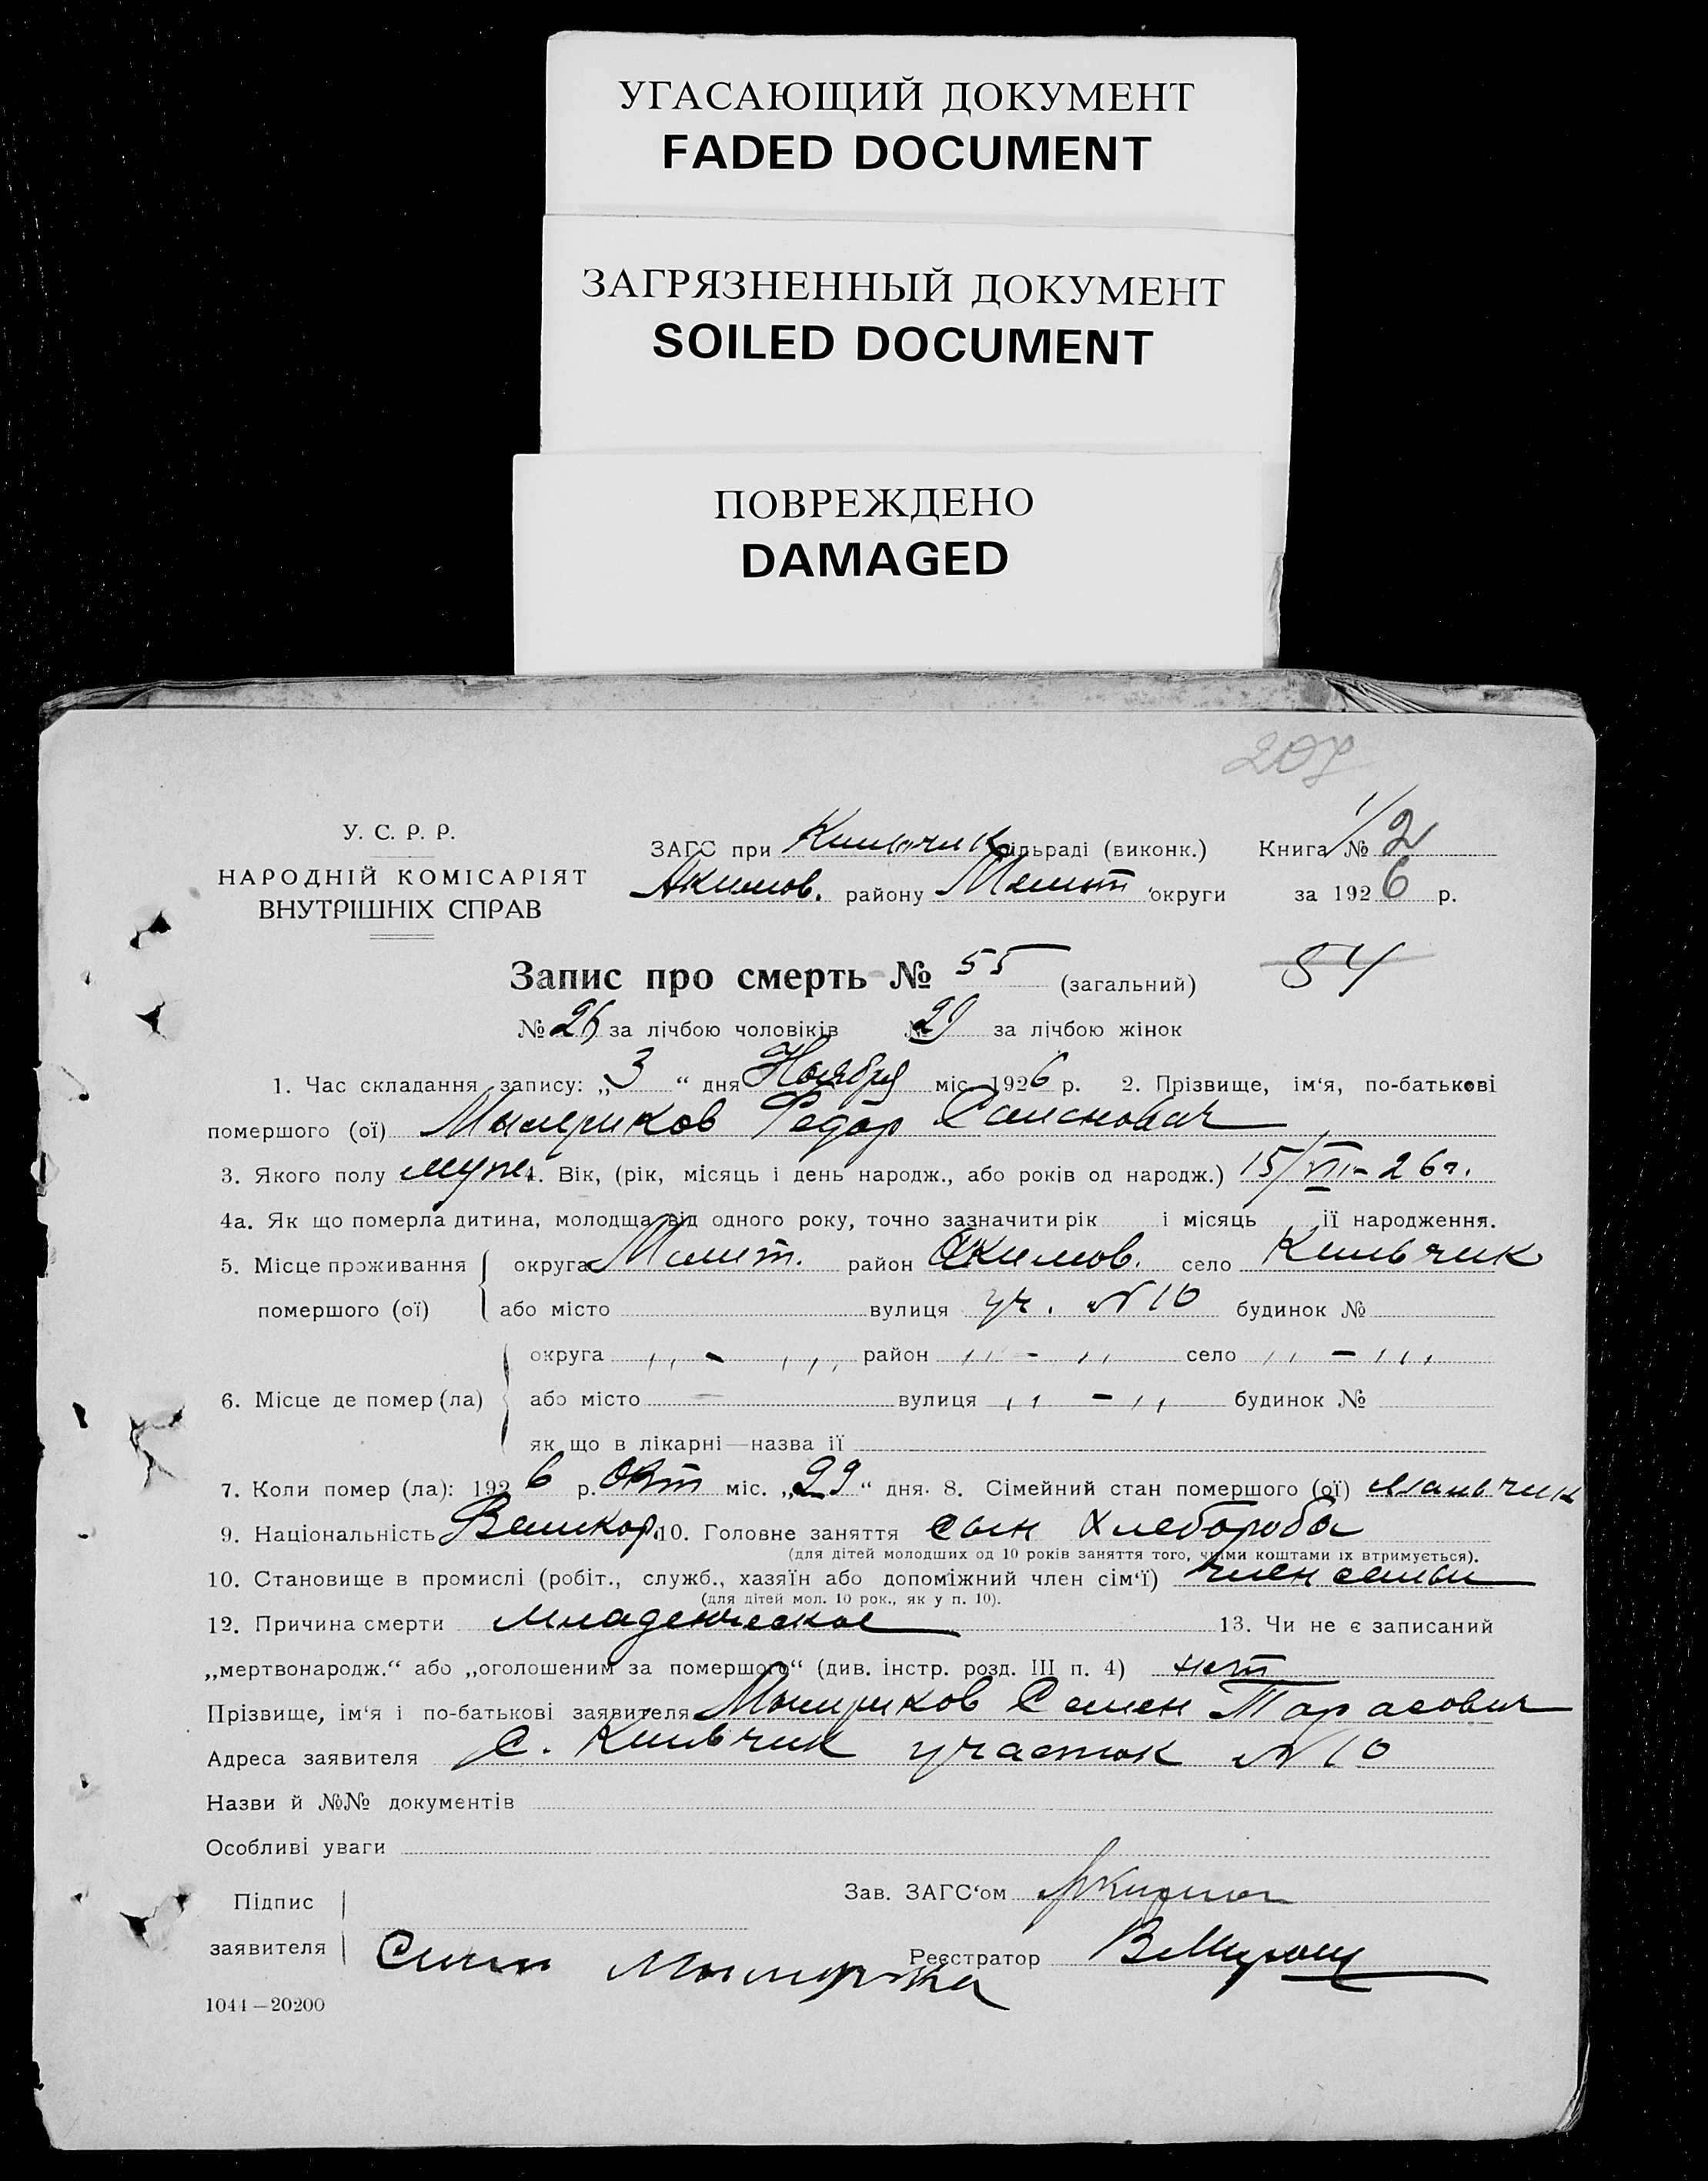 УГАСАЮЩИЙ ДОКУМЕНТ
FADED DOCUMENT
ЗАГРЯЗНЕННЫЙ ДОКУМЕНТ
SOILED DOCUMENT
ПОВРЕЖДЕНО
DAMAGED
207
У. С. Р. Р.
НАРОДНІЙ КОМІСАРІЯТ
ВНУТРІШНІХ СПРАВ
ЗАГС при Кильчик сільраді (виконк.) Книга № 1/2
Акимов. району Мелит округи за 1926 р.
Запис про смерть № 55 (загальний) 54
№ 26 за лічбою чоловіків № 29 за лічбою жінок
1. Час складання запису: „3“ дня Ноября міс. 1926 р. 2. Прізвище, ім‘я, по-батькові
помершого (ої) Федор Семенович
3. Якого полу муж 4. Вік, (рік, місяць і день народж., або років од народж.) 15/VII-26г.
4а. Як що померла дитина, молодща від одного року, точно зазначити рік і місяць її народження.
5. Місце проживання округа Мелит. район Акимов. село Кильчик
помершого (ої) або місто вулиця уч. №10 будинок №
округа „ - „ район „ - „ село „ - „
6. Місце де помер (ла) або місто - вулиця „ - „ будинок №
як що в лікарні—назва її
7. Коли помер (ла): 1926 р. Окт міс. „29“ дня. 8. Сімейний стан помершого (ої) мальчик
9. Національність Великор. 10. Головне заняття сын хлебороба
(для дітей молодших од 10 років заняття того, чиїми коштами їх втримується).
10. Становище в промислі (робіт., служб., хазяїн або допоміжний член сім‘ї) член семьи
(для дітей мол. 10 рок., як у п. 10).
12. Причина смерти младенческое 13. Чи не є записаний
„мертвонародж.“ або „оголошеним за помершого“ (див. інстр. розд. III п. 4) нет
Прізвище, ім‘я і по-батькові заявителя Семен Тарасович
Адреса заявителя С. Кильчик участок №10
Назви й №№ документів
Особливі уваги
Підпис
заявителя
Зав. ЗАГС‘ом
Реєстратор
1044—20200